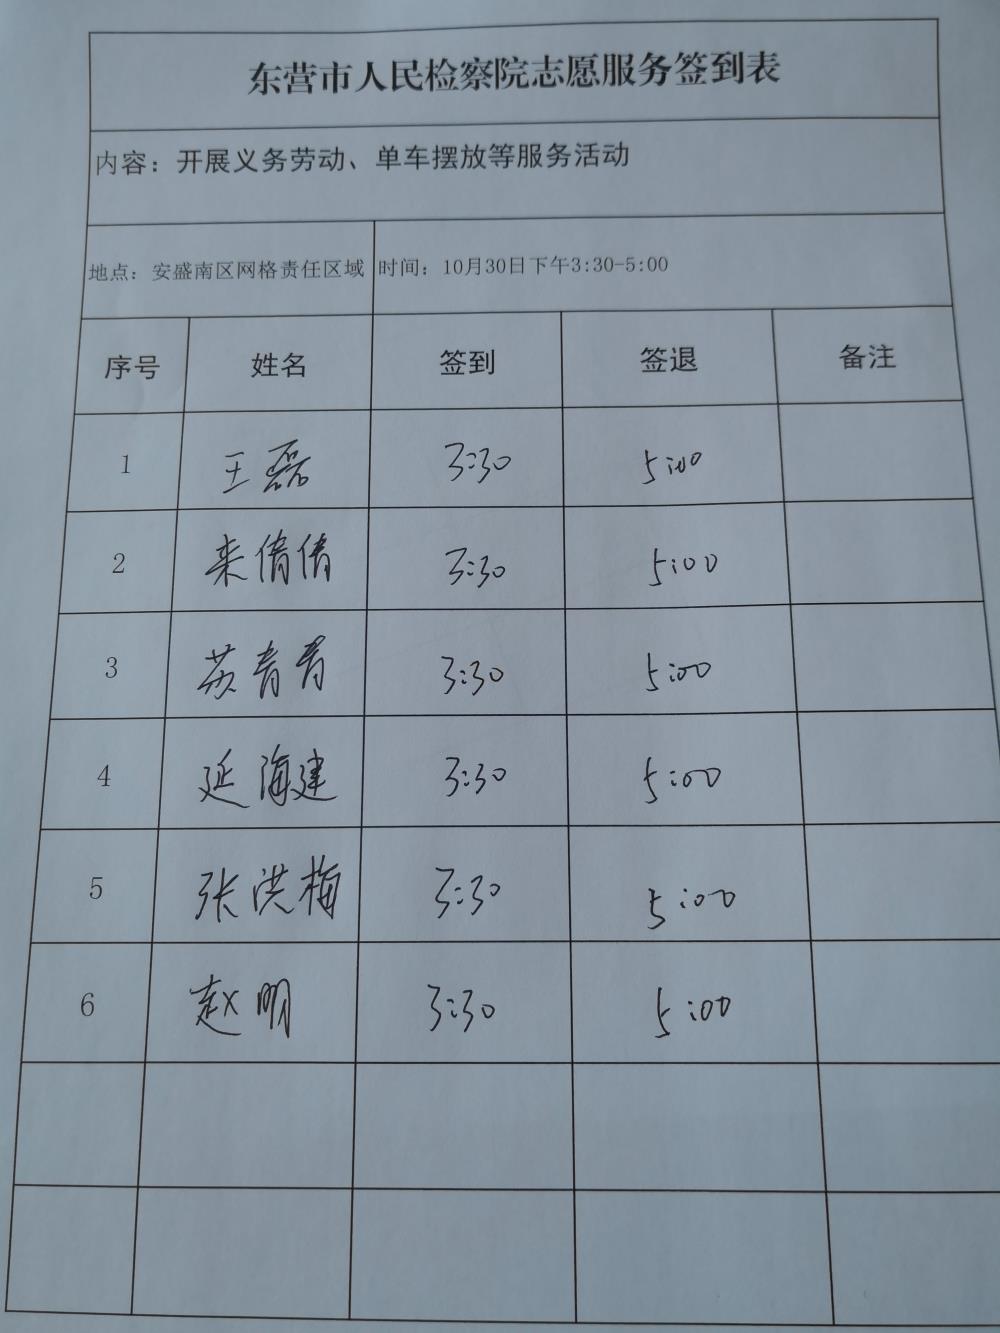 东营市人民检察院志愿服务签到表
内容：开展义务劳动、单车摆放等服务活动
地点：安盛南区网格责任区域 时间：10月30日下午3:30-5:00
序号 姓名 签到 签退 备注
1 王磊 3:30 5:00
2 来倩倩 3:30 5:00
3 苏青青 3:30 5:00
4 延海建 3:30 5:00
5 张洪梅 3:30 5:00
6 赵明 3:30 5:00